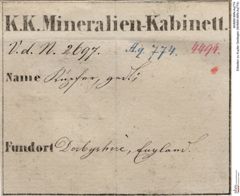 K.K. Mineralien-Kabinett.
V. d. N. 2697. A.q. 774. 4494.
Name Kupfer, ged:
Fundort Derbyshire, England.